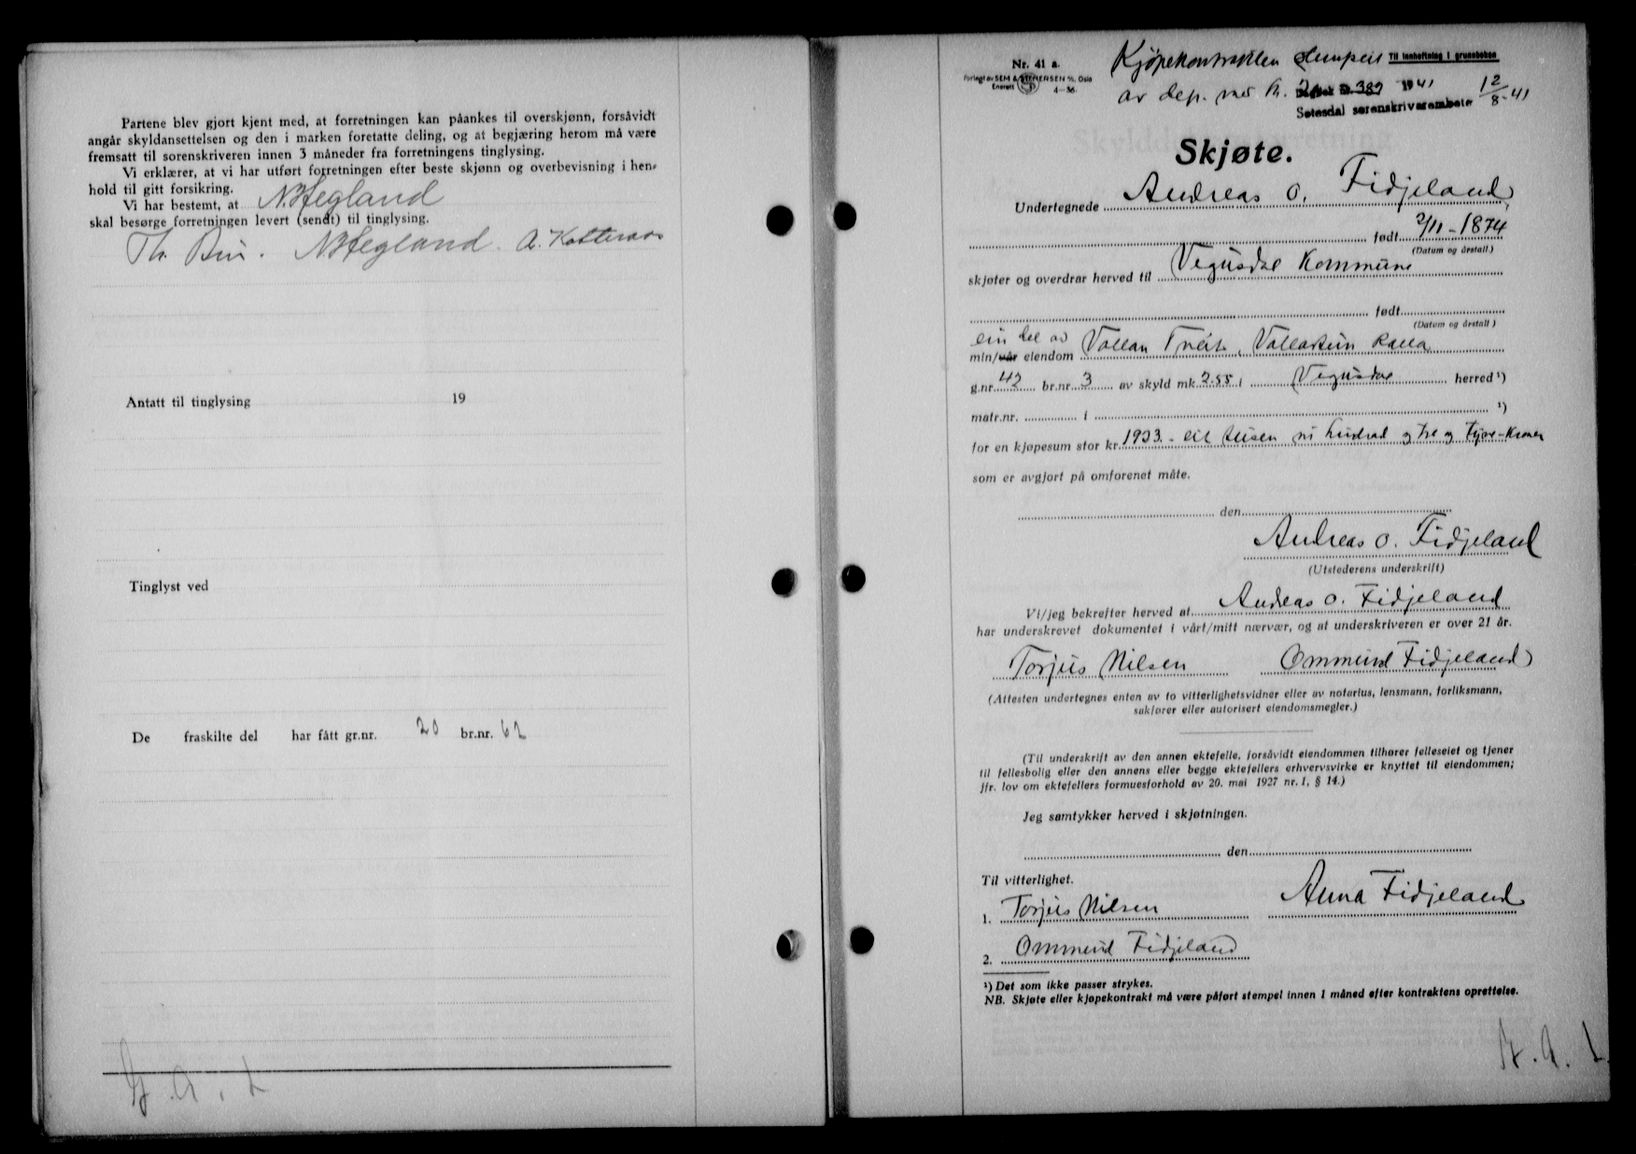 Partene blev gjort kjent med, at forretningen kan påankes til overskjønn, forsåvidt
angår skyldansettelsen og den i marken foretatte deling, og at begjæring herom må være
fremsatt til sorenskriveren innen 3 måneder fra forretningens tinglysing.
Vi erklærer, at vi har utført forretningen efter beste skjønn og overbevisning i hen-
hold til gitt forsikring.
Vi har bestemt, at N. Hegland
skal besørge forretningen levert (sendt) til tinglysing.
Th. N. Hegland. A.
Antatt til tinglysing 19
Tinglyst ved
De fraskilte del har fått gr.nr. 20 br.nr. 62
Nr. 41 a.
Forlegt av SEM & STENERSEN A/S, Oslo
Enerett 4-36.
Kjøpekontrakten stemplet
Til innheftning i grunnboken
av dep. med kr. 1941
Setesdal sorenskriverembete 12/8-41
Skjøte.
Undertegnede Andreas O. Fidjeland,
født 2/11-1874
(Datum og årstall)
skjøter og overdrar herved til Vegusdal Kommune
født
(Datum og årstall)
ein del av
min/vår eiendom
g.nr. 42 br.nr. 3 av skyld mk. 2.55 i Vegusdal herred ¹)
matr.nr. i ¹)
for en kjøpesum stor kr. 1923.- eit tusen ni hundrad og tre og tjue-Kroner
som er avgjort på omforenet måte.
den
Andreas O. Fidjeland
(Utstederens underskrift)
Vi/jeg bekrefter herved at Andreas O. Fidjeland
har underskrevet dokumentet i vårt/mitt nærvær, og at underskriveren er over 21 år.
Torjus Nilsen Ommund Fidjeland
(Attesten undertegnes enten av to vitterlighetsvidner eller av notarius, lensmann, forliksmann,
sakfører eller autorisert eiendomsmegler.)
(Til underskrift av den annen ektefelle, forsåvidt eiendommen tilhører felleseiet og tjener
til fellesbolig eller den annens eller begge ektefellers erhvervsvirke er knyttet til eiendommen;
jfr. lov om ektefellers formuesforhold av 20. mai 1927 nr. 1, § 14.)
Jeg samtykker herved i skjøtningen.
den
Til vitterlighet.
Anna Fidjeland
1. Torjus Nilsen
2. Ommund Fidjeland
¹) Det som ikke passer strykes.
NB. Skjøte eller kjøpekontrakt må være påført stempel innen 1 måned efter kontraktens oprettelse.